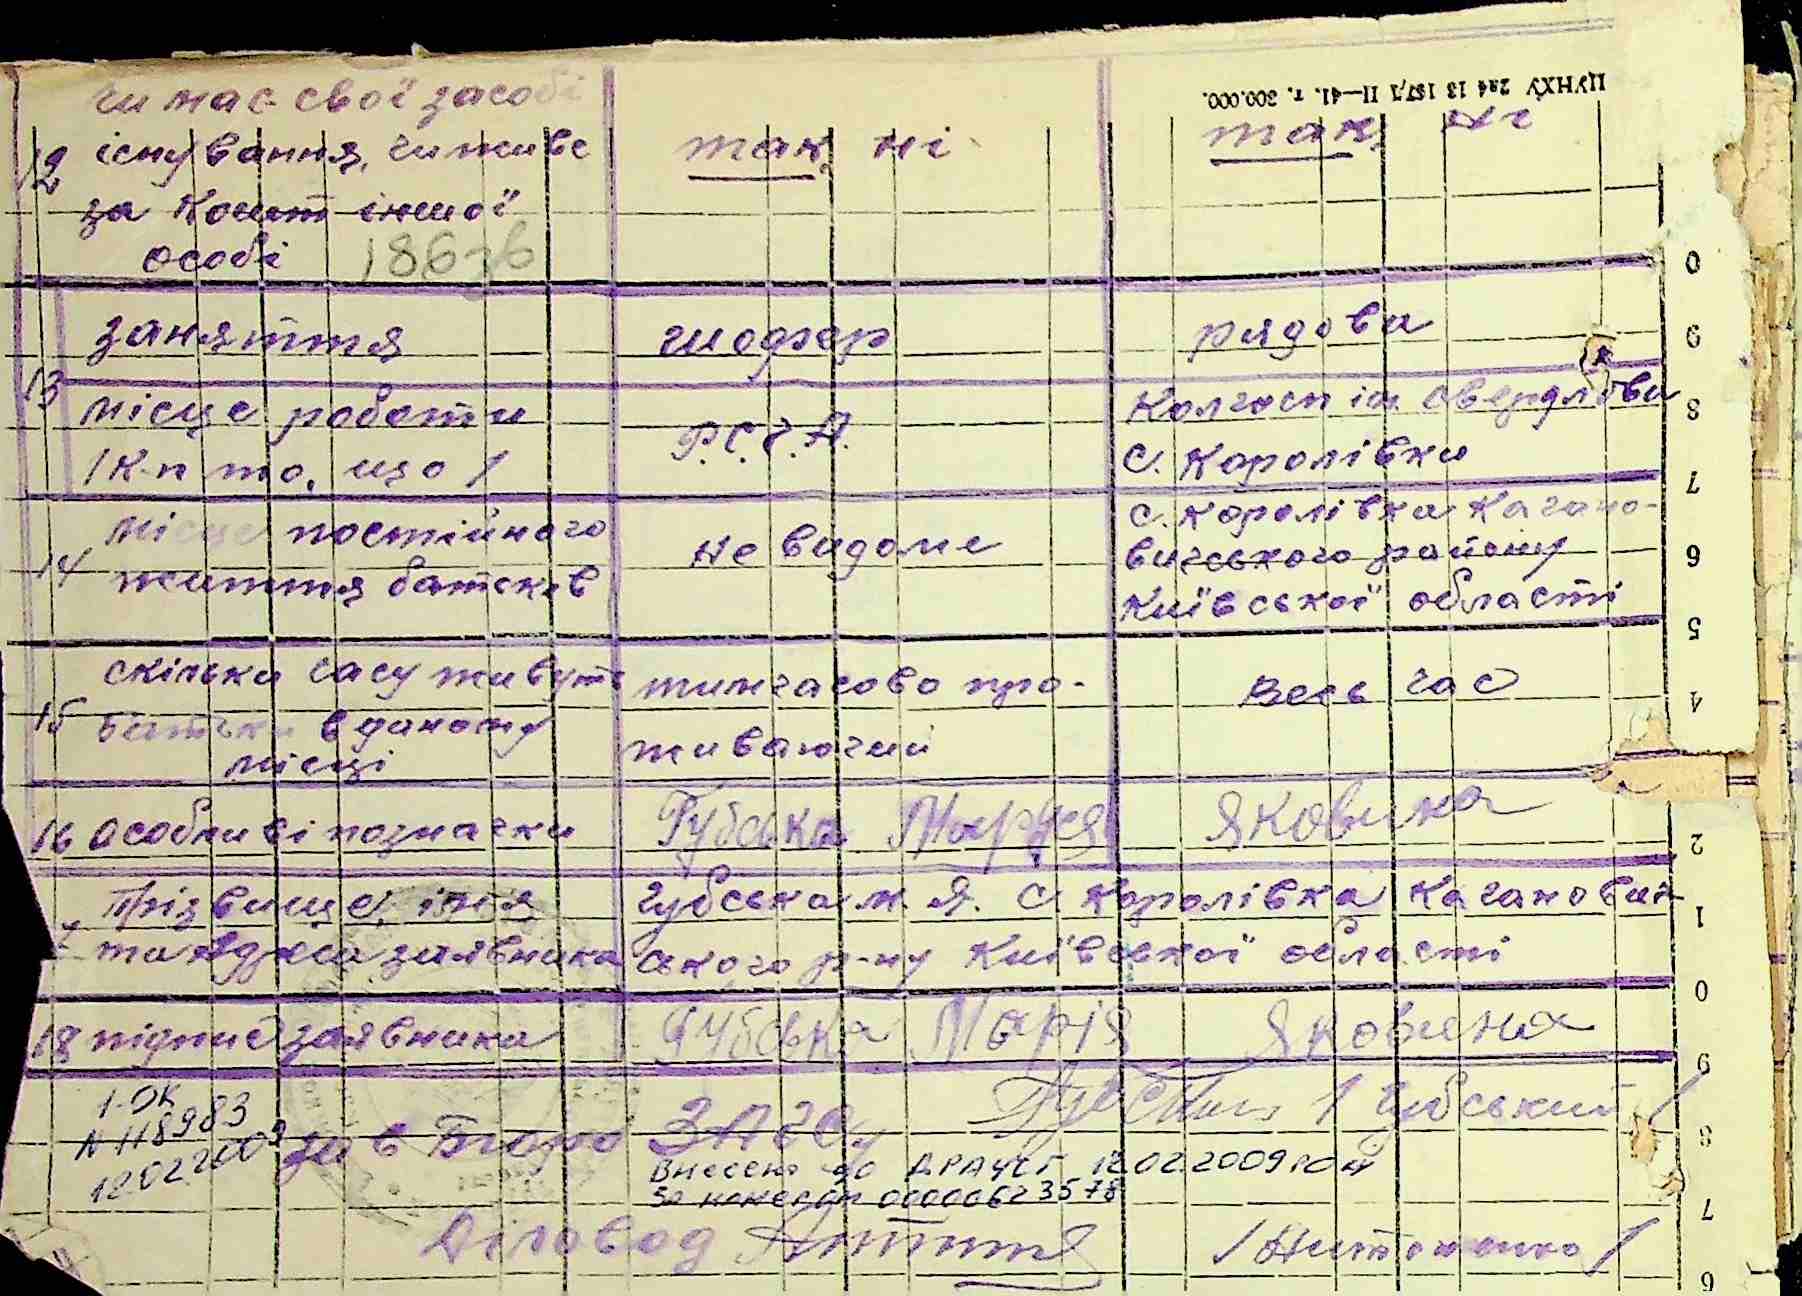 ЦУНХУ
II—41. т. 300.000.
чи має свої засобі
12 існування, чи живе так, ні так, ні
за кошт іншої
особі
заняття шофер рядова
13 місце роботи Р.С.Ч.А. Колгосп ім. Свердлова
/к-п то, що/ с. Королівка
14 місце постійного не видоме с. Королівка Кагано-
життя батьків вичського району
Київської області
15 скільки часу живуть тимчасово про- Весь час
батьки в даному живаючий
місці
16 Особливі позначки Губська Маруся Яковина
Прізвище, імя Губська М. Я. с. Королівка Каганович-
та адреса заявника ського р-ну Київської області
18 підпис заявника Губська Марія Яковлена
1-ОК /Губський/
N 118983
12.02.2009 зав Бюро ЗАГСу
Внесено до ДРАЦСГ 12.02.2009 року
за номером 00000623578
Діловод
0
9
8
7
6
5
4
2
1
0
9
8
7
6